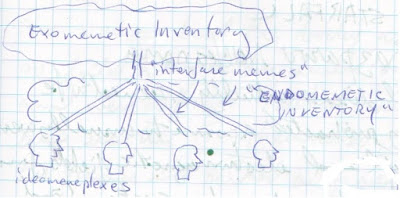 Exomemetic Inventory
"interfare memes"
"ENDOMEMETIC
INVENTORY"
ideomemeplexes